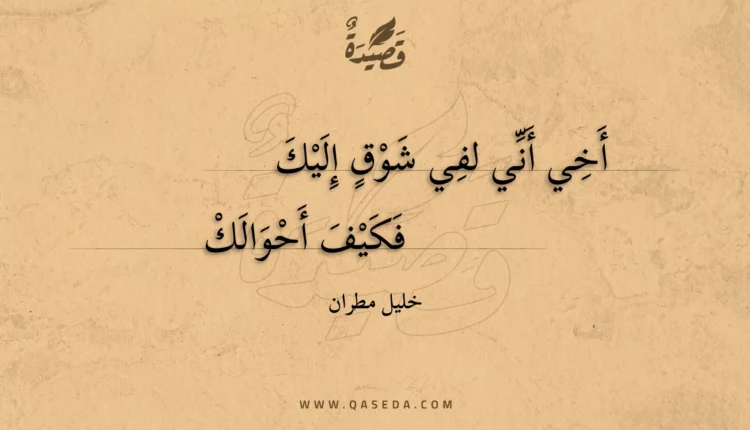 قَصِيدَةٌ
أَخِي أَنِّي لفِي شَوْقٍ إِلَيْكَ
فَكَيْفَ أَحْوَالَكْ
خليل مطران
WWW.QASEDA.COM